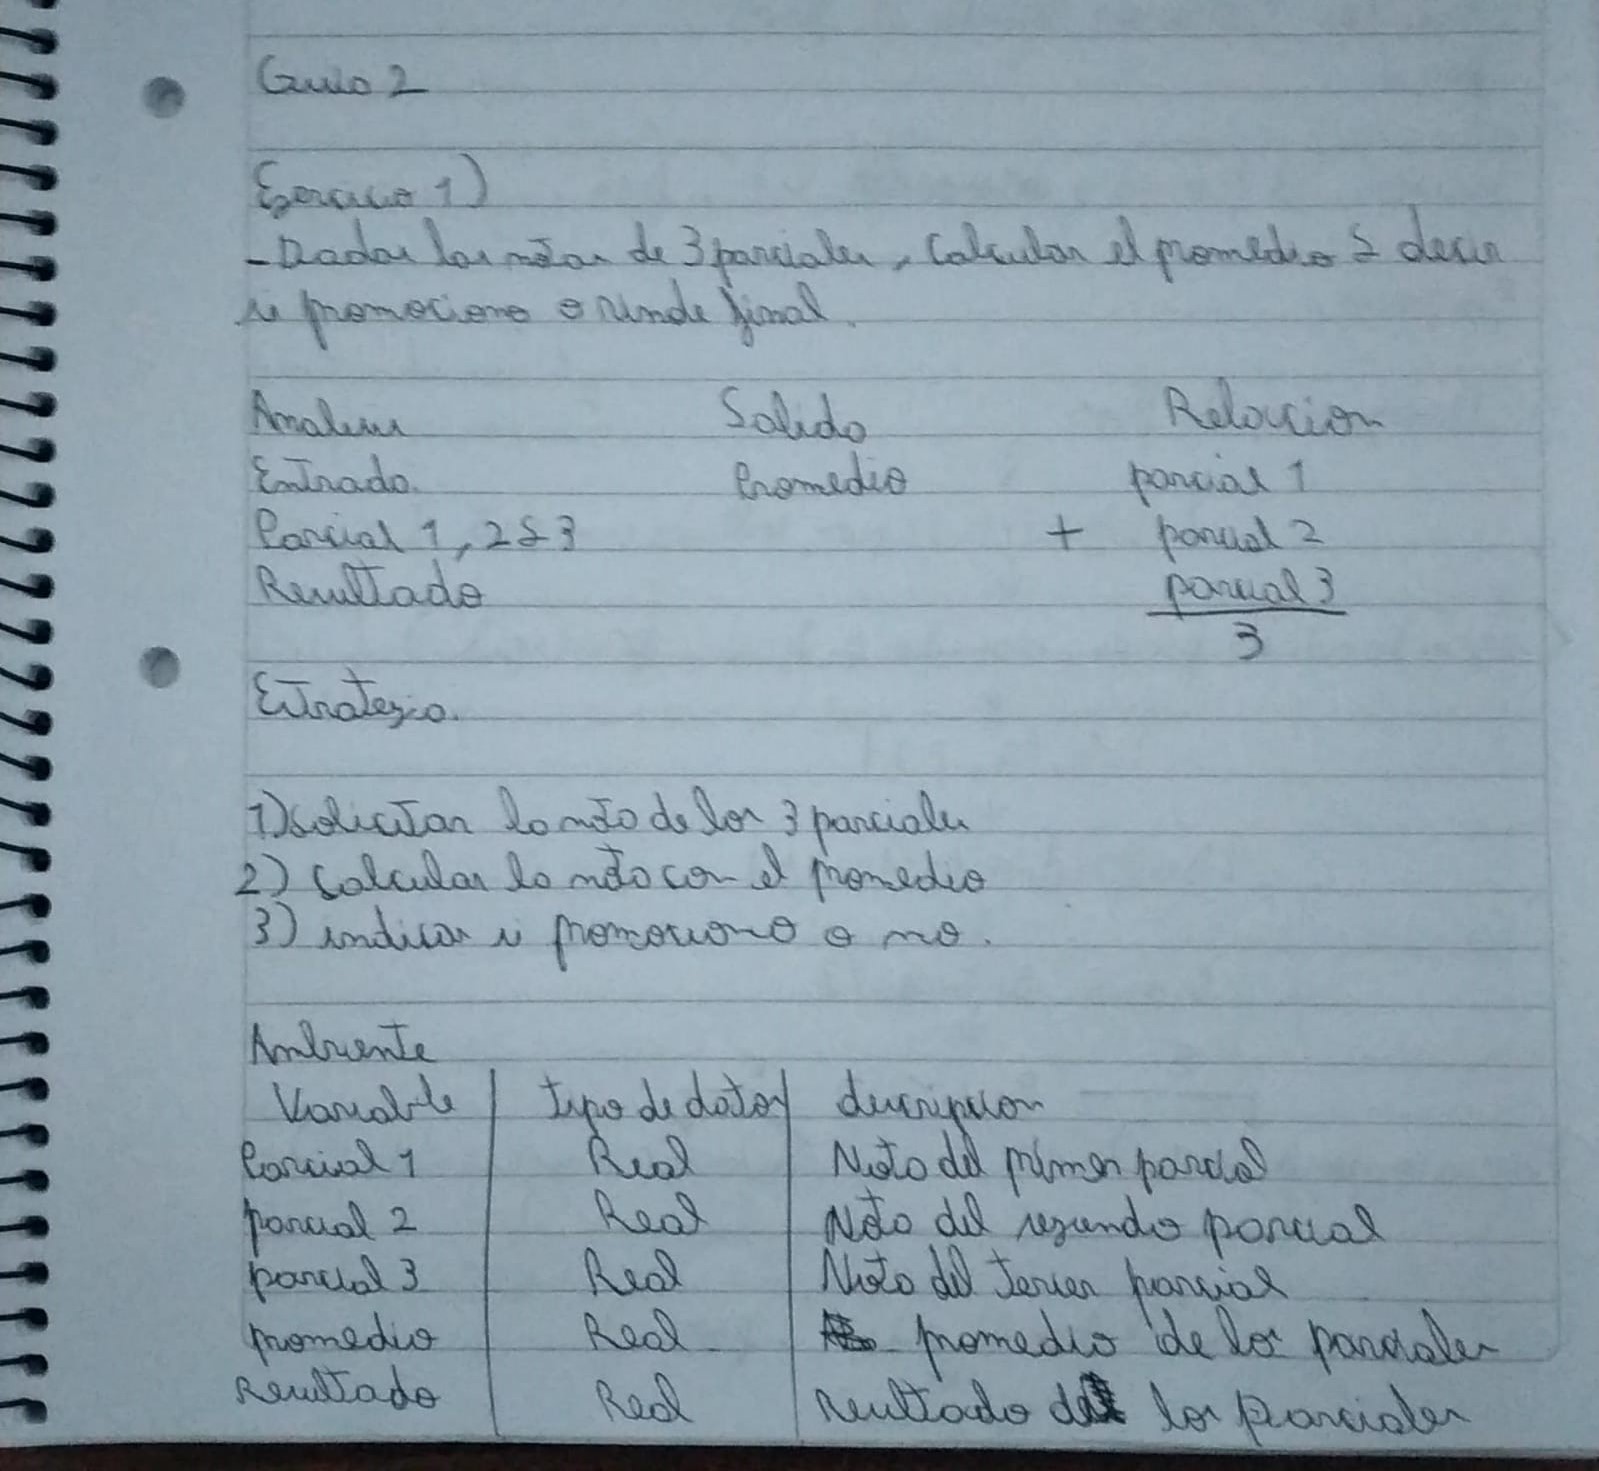 Guia 2
Ejercicio 1)
- Dadas las notas de 3 parciales, calcular el promedio & decir
si promociono o rinde final.
Analisis Salida Relacion
Entrada. Promedio parcial 1
Parcial 1, 2 & 3 + parcial 2
Resultado parcial 3
3
Estrategia.
1) Solicitar la nota de los 3 parciales
2) Calcular la nota con el promedio
3) indicar si promociono o no.
Ambiente
Variable tipo de datos descripcion
Parcial 1 Real Nota del primer parcial
parcial 2 Real Nota del segundo parcial
parcial 3 Real Nota del tercer parcial
promedio Real promedio de los parciales
Resultado Real resultado de los parciales